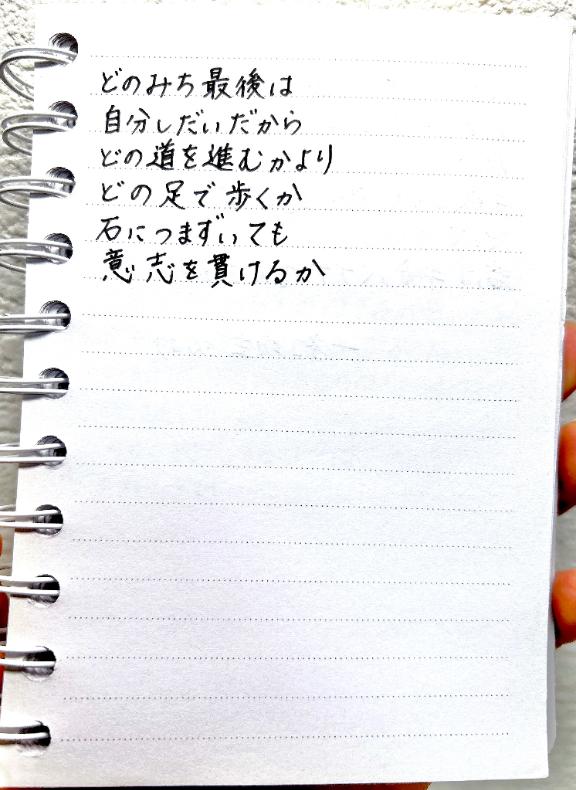 どのみち最後は
自分しだいだから
どの道を進むかより
どの足で歩くか
石につまずいても
意志を貫けるか